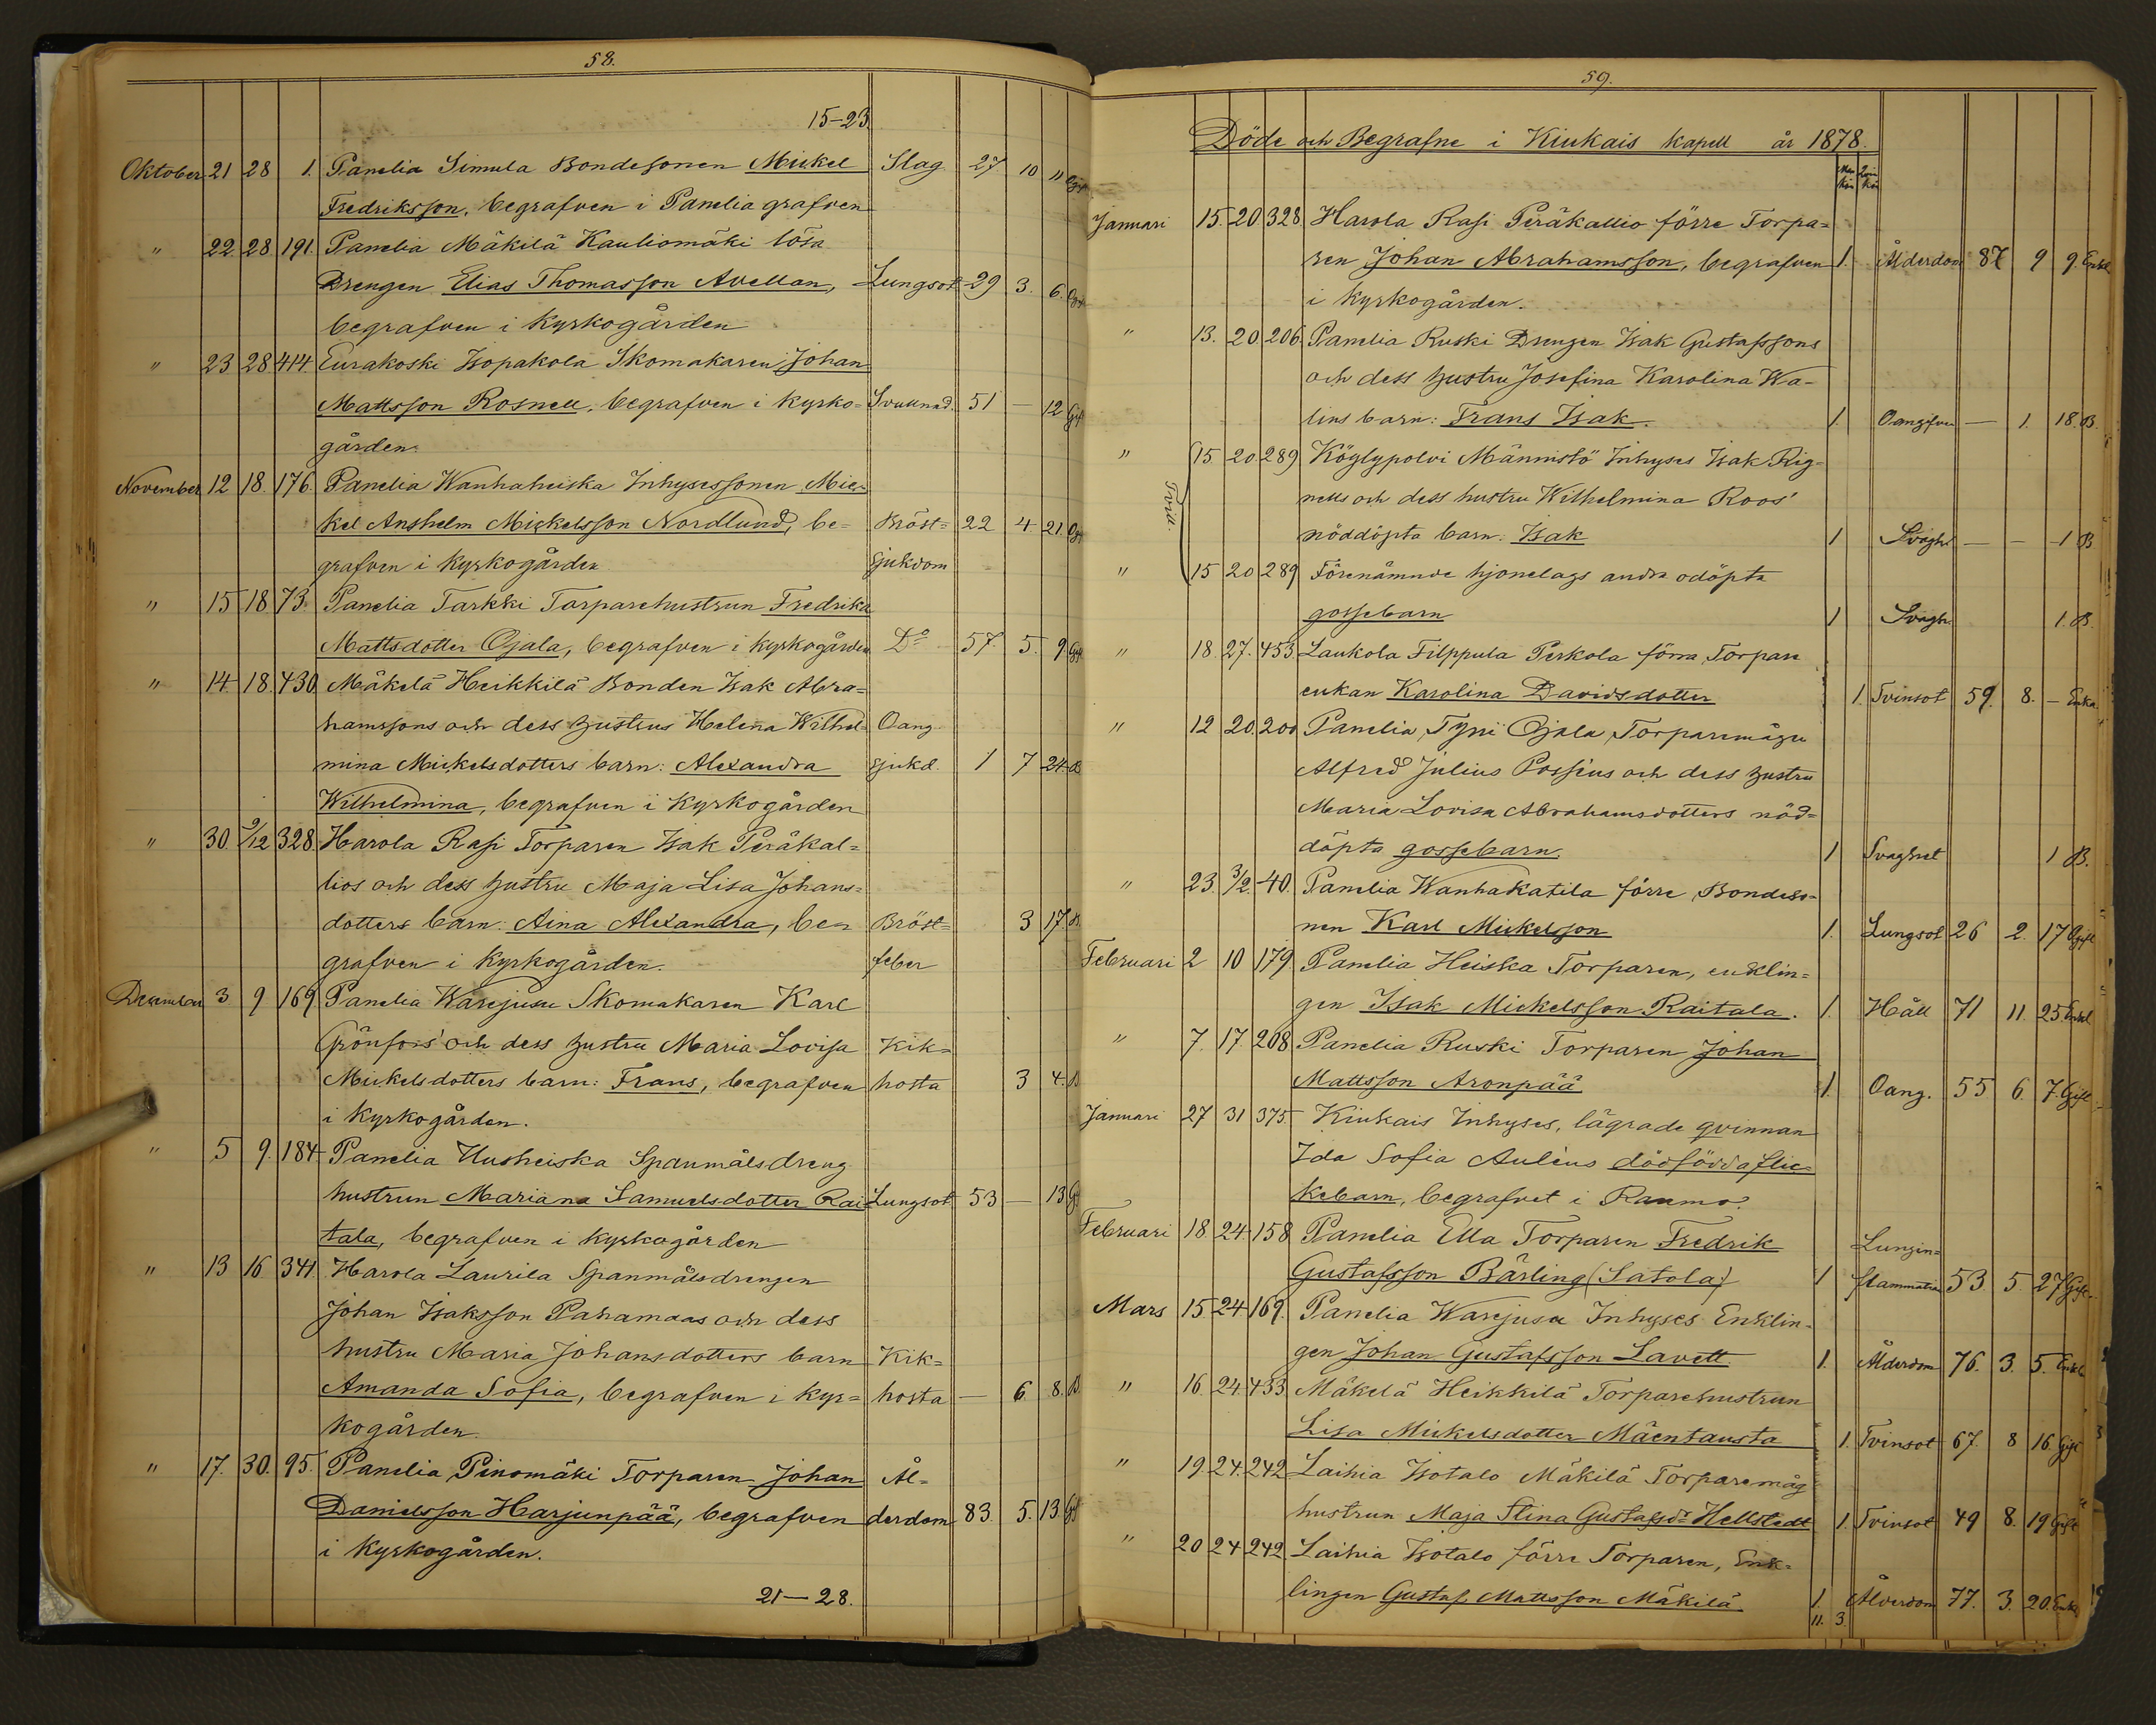 58.
15-23
Oktober 21 28 1. Panelia Simula Bondesonen Mickel Slag 27 10 " Ogift
Fredriksson, begrafven i Panelia grafven
" 22 28. 191. Panelia Mäkilä Kauliomäki lösa
Drengen Elias Thomasson Avellan, Lungsot 29 3. 6.
begrafven i Kyrkogården
" 23 28 414 Eurakoski Isopakola Skomakaren Johan
Mattsson Rosnell, begrafven i Kyrko= Svullnad. 51 — 12 Gift
gården.
November 12 18. 176. Panelia Wanhaheiska Inhysessonen Mic=
kel Anshelm Mickelsson Nordlund, be= Bröst= 22 4 21.
grafven i Kyrkogården sjukdom
" 15 18 73. Panelia Tarkki Torparehustrun Fredrika
Mattsdotter Ojala, begrafven i kyrkogården Do 57. 5. 9 Gift
" 14. 18. 430 Mäkelä Heikkilä Bonden Isak Abra=
hamssons och dess hustrus Helena Wilhel= Oang.
mina Mickelsdotters barn: Alexandra sjukd. 1 7 24. B
Wilhelmina, begrafven i Kyrkogården
" 30. 9/12 328. Harola Rasi Torparen Isak Peräkal=
lios och dess hustru Maja Lisa Johans=
dotters barn: Aina Alexandra, be= Bröst= 3 17. B.
grafven i Kyrkogården. feber
December 3 9 169 Panelia Warejusu Skomakaren Karl
Grönfors' och dess hustru Maria Lovisa Kik=
Mickelsdotters barn: Frans, begrafven hosta 3 4. B
i Kyrkogården.
" 5 9. 184 Panelia Uusheiska Spanmålsdreng
hustrun Mariana Samuelsdotter Rai= Lungsot 53 — 13 G
tala, begrafven i Kyrkogården
" 13 16 341. Harola Laurila Spanmålsdrengen
Johan Isaksson Pahamaas och dess
hustru Maria Johansdotters barn Kik=
Amanda Sofia, begrafven i Kyr= hosta — 6. 8. B.
kogården.
" 17. 30. 95. Panelia Pinomäki Torparen Johan Ål=
Danielsson Harjunpää, begrafven derdom 83. 5. 13. Gift
i Kyrkogården.
21—28.
59.
Döde och Begrafne i Kiukais kapell år 1878.
Man kön Qvin kön
Januari 15. 20. 328 Harola Rasi Peräkallio förre Torpa=
ren Johan Abrahamsson, begrafven 1. Ålderdom 87 9 9. Enkl
i Kyrkogården.
" 13. 20. 206. Panelia Ruski Drengen Isak Gustafssons
och dess hustru Josefina Karolina Wa-
lins barn: Frans Isak. 1. Oangifven — 1. 18. B.
" 15. 20. 289 Köylypolvi Männistö Inhyses Isak Rig-
nells och dess hustru Wilhelmina Roos'
nöddöpta barn: Isak 1 Svagh. — — 1 B
Tvill.
" 15 20 289 Förenämnde hjonelags andra odöpta
gossebarn 1 Svagh. 1. B.
" 18. 27. 453. Laukola Filppula Perkola förra Torpare
enkan Karolina Davidsdotter 1. Tvinsot 59. 8. — Enka.
" 12 20. 200 Panelia Tyni Ojala Torparemågen
Alfred Julius Possius och dess hustru
Maria Lovisa Abrahamsdotters nöd=
döpta gossebarn. 1 Svaghet 1 B.
" 23. 3/2 40. Panelia Wanhakatila förre Bondeso=
nen Karl Mickelsson 1. Lungsot 26 2. 17 Ogift
Februari 2 10 179 Panelia Heiska Torparen, enklin=
gen Isak Mickelsson Raitala. 1. Håll 71 11. 25. Enkl
" 7. 17. 208 Panelia Ruski Torparen Johan
Mattsson Aronpää 1. Oang. 55 6. 7. Gift
Januari 27 31 375. Kiukais Inhyses, lägrade qvinnan
Ida Sofia Aulèns dödfödda flic=
kebarn, begrafvet i Raumo.
Februari 18. 24 158 Panelia Ella Torparen Fredrik Lungin=
Gustafsson Bärling (Satola) 1 flammation 53. 5. 27 Gift.
Mars 15 24 169. Panelia Warejusu Inhyses Enklin-
gen Johan Gustafsson Lavett 1. Ålderdom 76. 3. 5. Enkl
" 16. 24. 433 Mäkelä Heikkilä Torparehustrun
Lisa Mickelsdotter Mäentausta 1. Tvinsot 67. 8 16 Gift
" 19. 24. 242 Laihia Isotalo Mäkilä Torparemåg
hustrun Maja Stina Gustafsdr Hellstedt 1. Tvinsot 49 8. 19 Gift
" 20 24 242 Laihia Isotalo förre Torparen, Enk=
lingen Gustaf Mattsson Mäkilä 1. Ålderdom 77. 3. 20. Enkl
11. 3